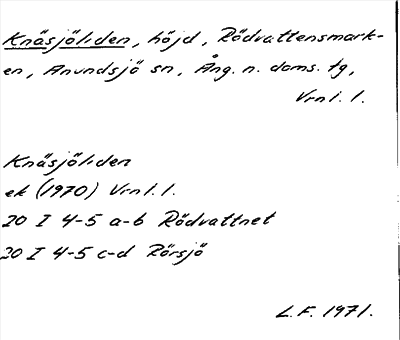 Knäsjöliden, höjd, Rödvattensmark-
en, Anundsjö sn, Ång. n. doms. tg,
Vrnl. l.
Knäsjöliden
ek (1970) Vrnl. l.
20 I 4-5 a-b Rödvattnet
20 I 4-5 c-d Rörsjö
L.F. 1971.